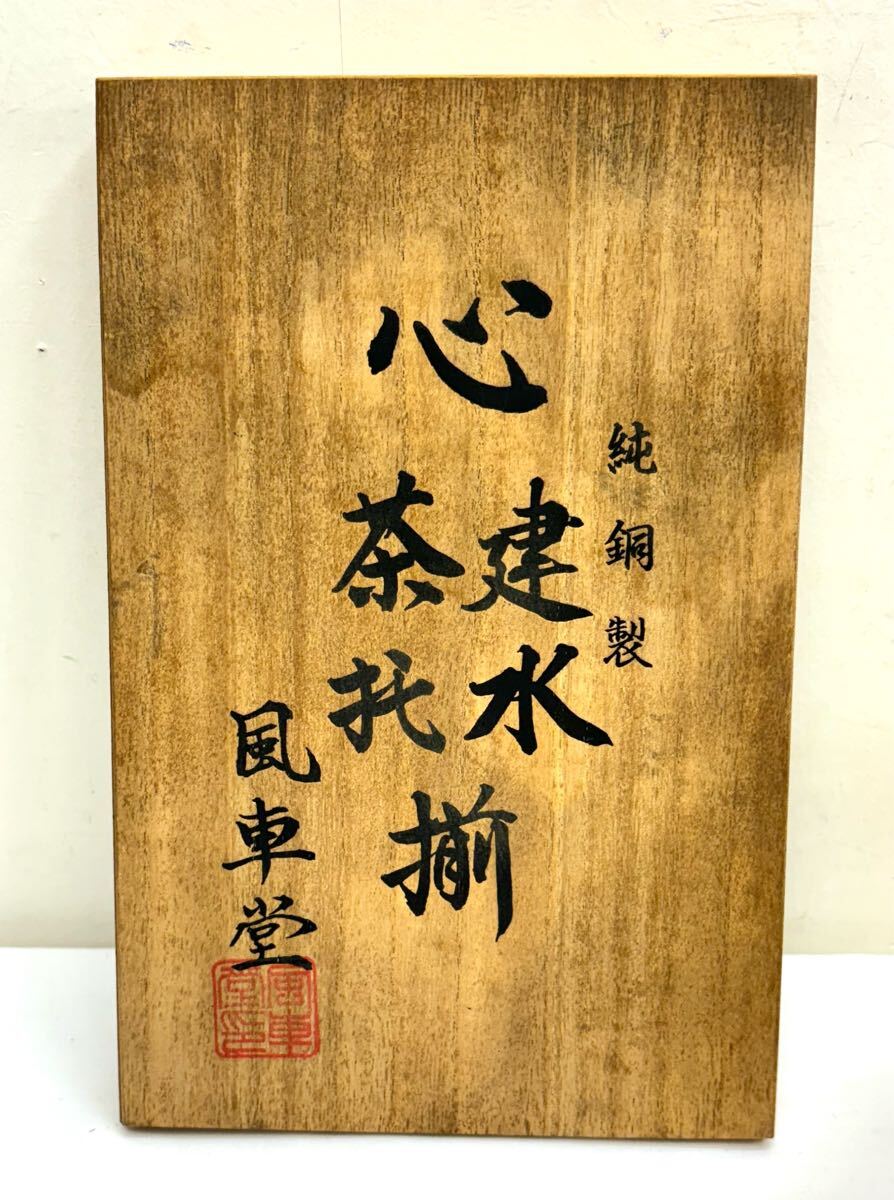 純銅製
心
建水
茶托
揃
風車堂
風車堂之印